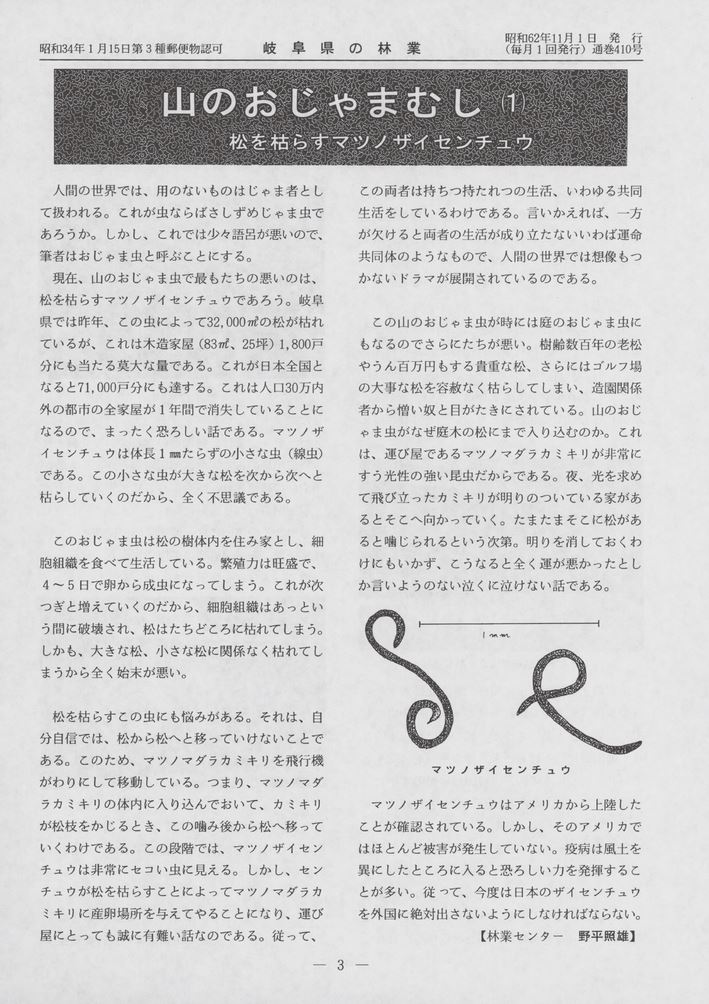 昭和34年1月15日第3種郵便物認可
岐阜県の林業
昭和62年11月1日　発　行
（毎月1回発行）通巻410号
山のおじゃまむし (1)
松を枯らすマツノザイセンチュウ
人間の世界では、用のないものはじゃま者とし
て扱われる。これが虫ならばさしずめじゃま虫で
あろうか。しかし、これでは少々語呂が悪いので、
筆者はおじゃま虫と呼ぶことにする。
現在、山のおじゃま虫で最もたちの悪いのは、
松を枯らすマツノザイセンチュウであろう。岐阜
県では昨年、この虫によって32,000㎥の松が枯れ
ているが、これは木造家屋（83㎡、25坪）1,800戸
分にも当たる莫大な量である。これが日本全国と
なると71,000戸分にも達する。これは人口30万内
外の都市の全家屋が1年間で消失していることに
なるので、まったく恐ろしい話である。マツノザ
イセンチュウは体長1㎜たらずの小さな虫（線虫）
である。この小さな虫が大きな松を次から次へと
枯らしていくのだから、全く不思議である。
このおじゃま虫は松の樹体内を住み家とし、細
胞組織を食べて生活している。繁殖力は旺盛で、
4～5日で卵から成虫になってしまう。これが次
つぎと増えていくのだから、細胞組織はあっとい
う間に破壊され、松はたちどころに枯れてしまう。
しかも、大きな松、小さな松に関係なく枯れてし
まうから全く始末が悪い。
松を枯らすこの虫にも悩みがある。それは、自
分自信では、松から松へと移っていけないことで
ある。このため、マツノマダラカミキリを飛行機
がわりにして移動している。つまり、マツノマダ
ラカミキリの体内に入り込んでおいて、カミキリ
が松枝をかじるとき、この噛み後から松へ移って
いくわけである。この段階では、マツノザイセン
チュウは非常にセコい虫に見える。しかし、セン
チュウが松を枯らすことによってマツノマダラカ
ミキリに産卵場所を与えてやることになり、運び
屋にとっても誠に有難い話なのである。従って、
この両者は持ちつ持たれつの生活、いわゆる共同
生活をしているわけである。言いかえれば、一方
が欠けると両者の生活が成り立たないいわば運命
共同体のようなもので、人間の世界では想像もつ
かないドラマが展開されているのである。
この山のおじゃま虫が時には庭のおじゃま虫に
もなるのでさらにたちが悪い。樹齢数百年の老松
やうん百万円もする貴重な松、さらにはゴルフ場
の大事な松を容赦なく枯らしてしまい、造園関係
者から憎い奴と目がたきにされている。山のおじ
ゃま虫がなぜ庭木の松にまで入り込むのか。これ
は、運び屋であるマツノマダラカミキリが非常に
すう光性の強い昆虫だからである。夜、光を求め
て飛び立ったカミキリが明りのついている家があ
るとそこへ向かっていく。たまたまそこに松があ
ると噛じられるという次第。明りを消しておくわ
けにもいかず、こうなると全く運が悪かったとし
か言いようのない泣くに泣けない話である。
1mm
マツノザイセンチュウ
マツノザイセンチュウはアメリカから上陸した
ことが確認されている。しかし、そのアメリカで
はほとんど被害が発生していない。疫病は風土を
異にしたところに入ると恐ろしい力を発揮するこ
とが多い。従って、今度は日本のザイセンチュウ
を外国に絶対出さないようにしなければならない。
【林業センター　野平照雄】
— 3 —